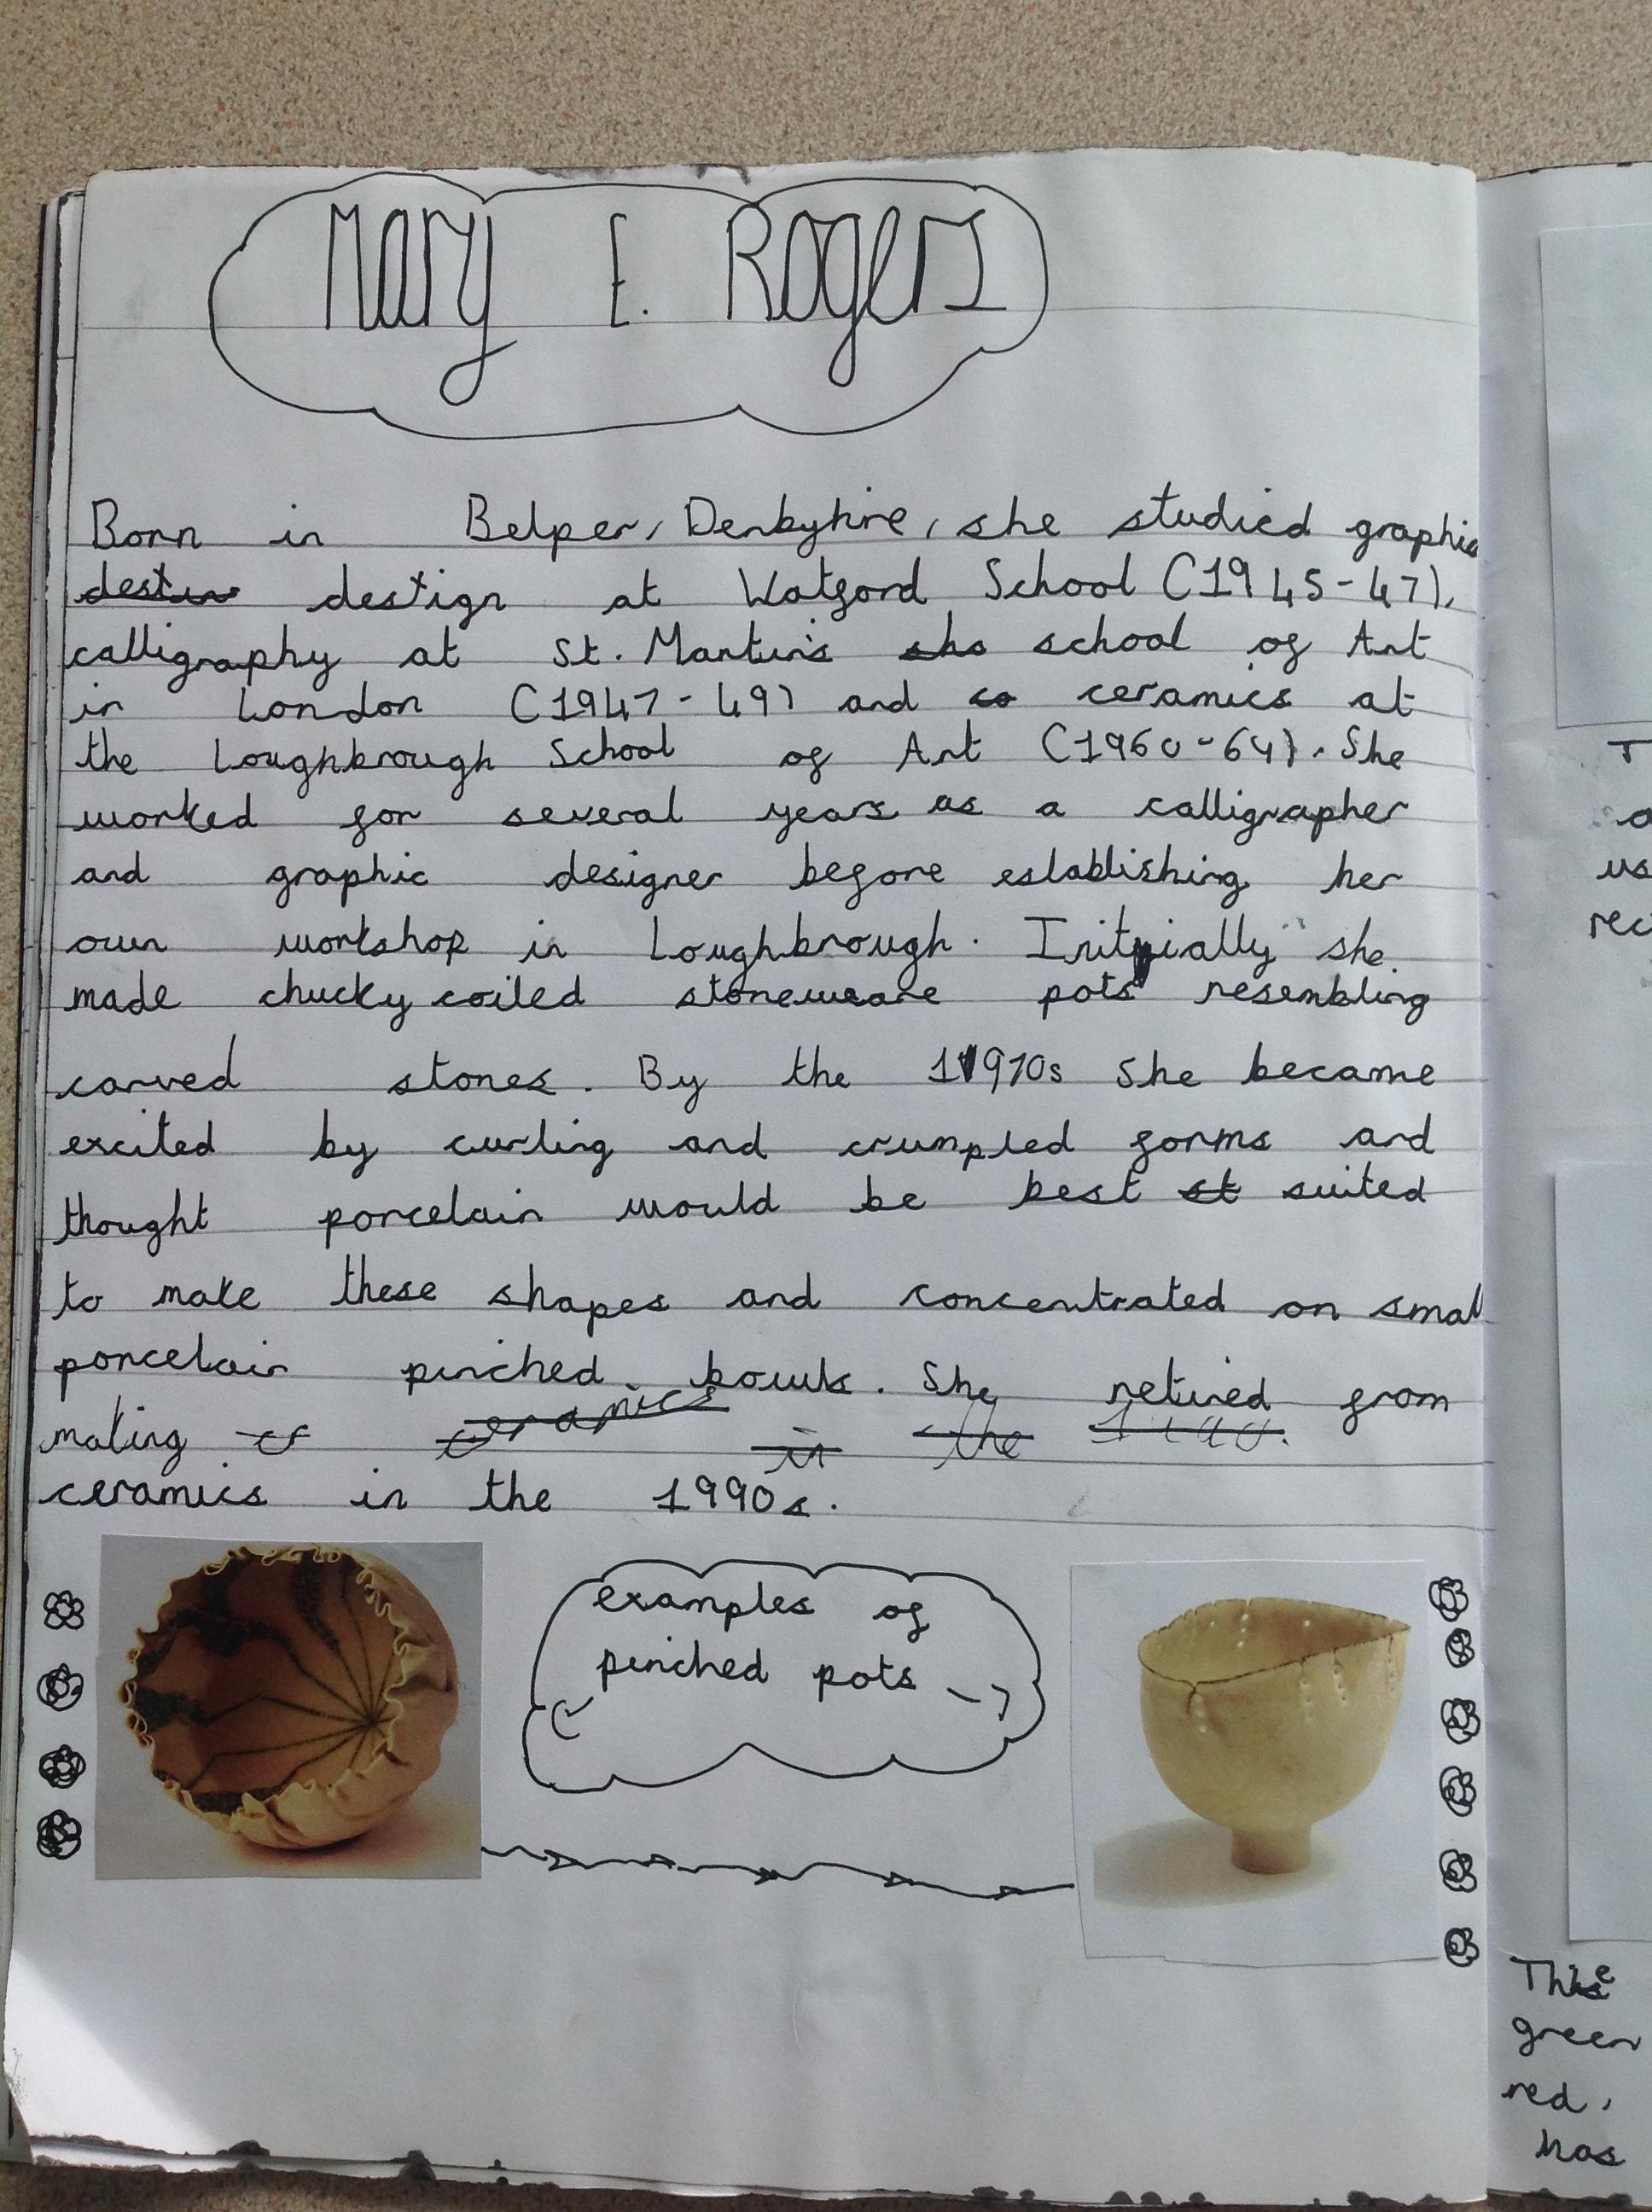 Mary E. Rogers
Born in Belper, Denbyhire, she studied graphic
destin destign at Watford School (1945-47),
calligraphy at St. Martin's sho school of Art
in London (1947-49) and co ceramics at
the Loughbrough School of Art (1960-64). She
worked for several years as a calligrapher
and graphic designer before establishing her
own workshop in Loughbrough. Initially she
made chucky coiled stoneware pots resembling
carved stones. By the 1970s She became
excited by curling and crumpled forms and
thought porcelain would be best st suited
to make these shapes and concentrated on small
porcelain pinched bowls. She retired from
making ceramics in the
ceramics in the 1990s.
examples of
pinched pots
T
us
rec
This
green
red,
has